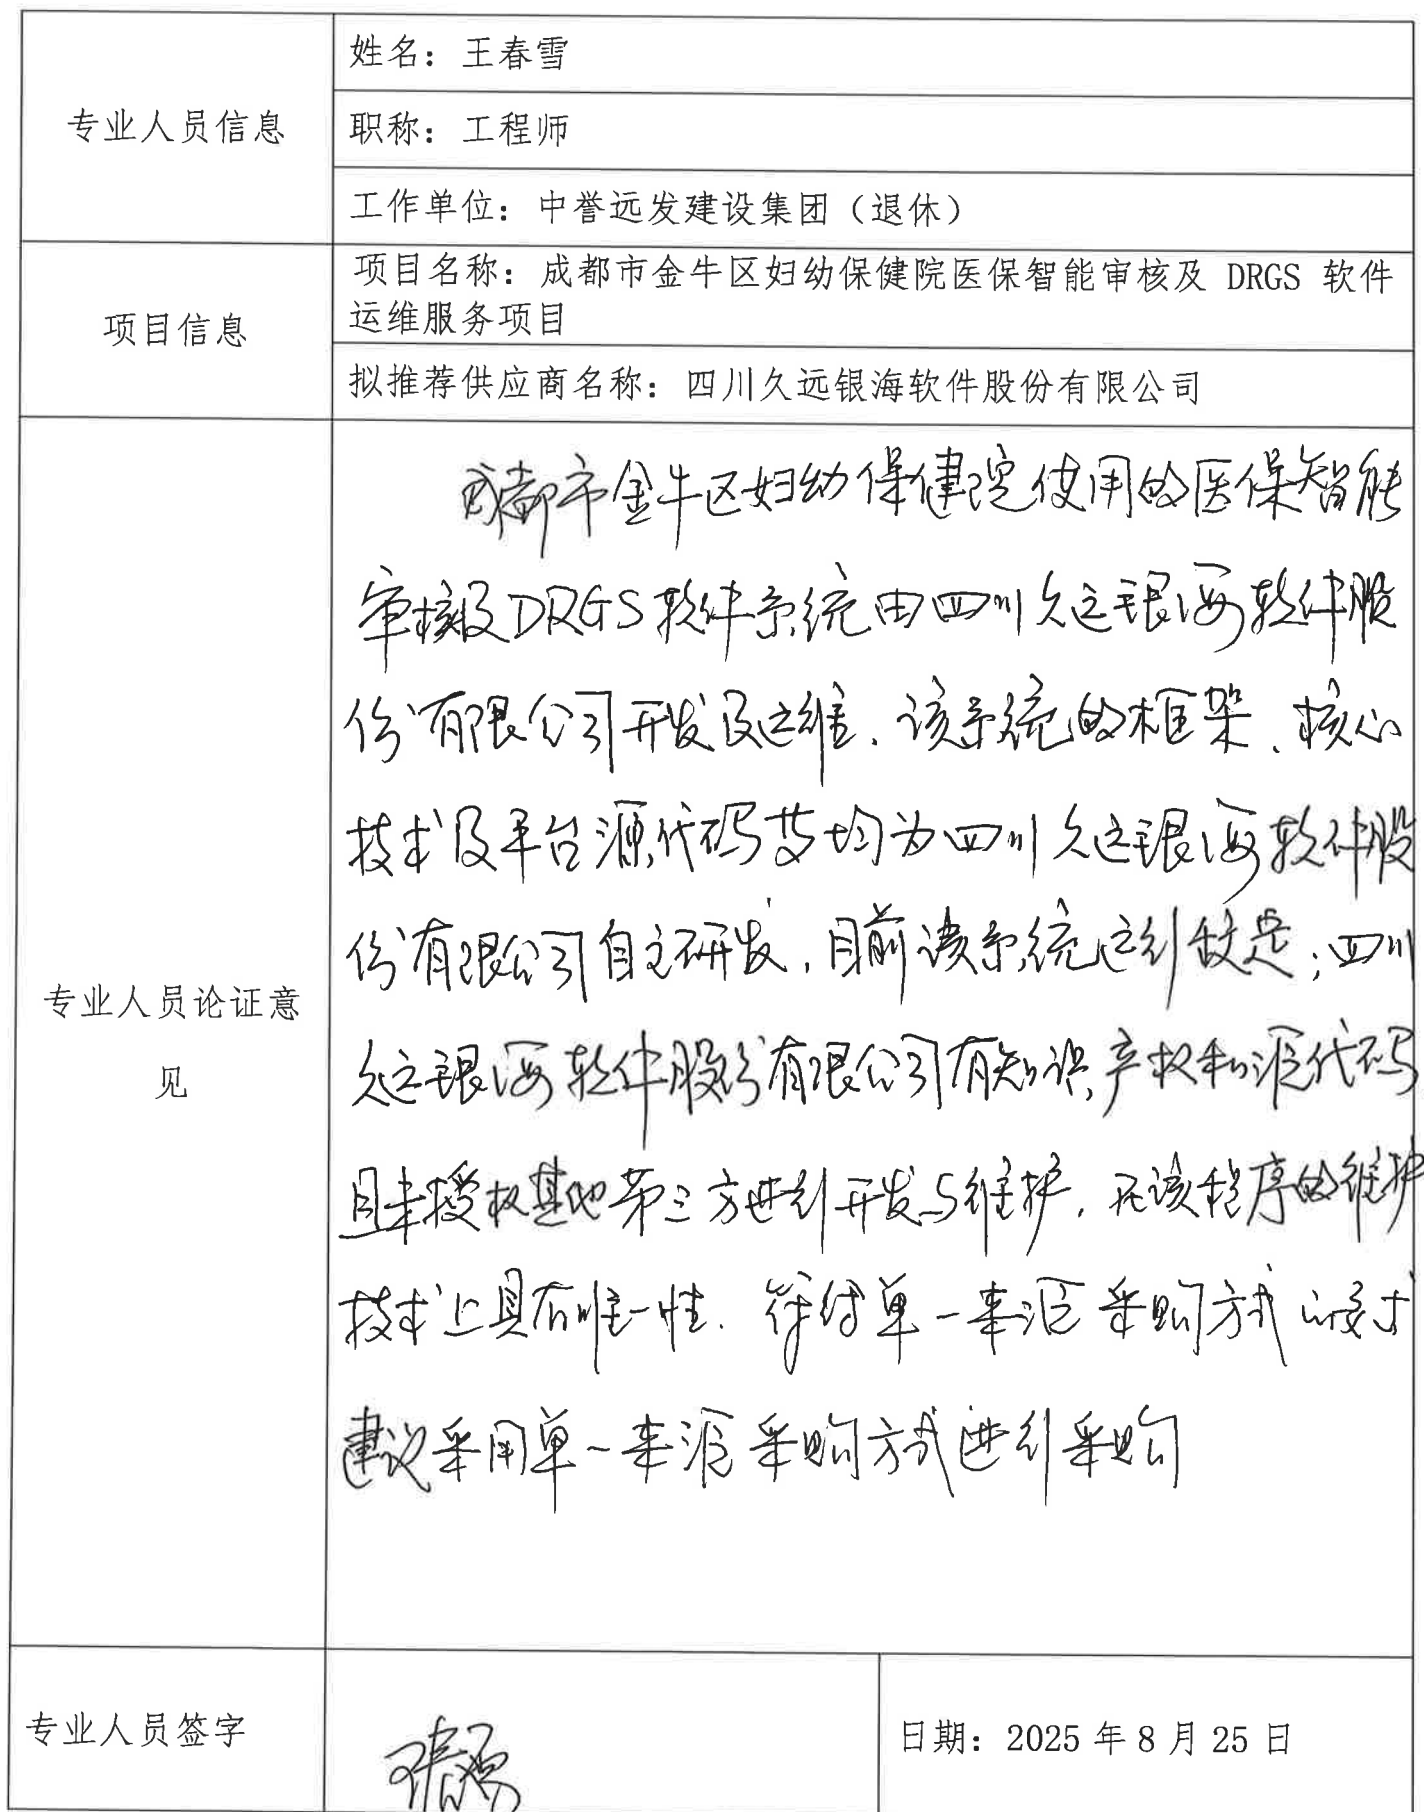 专业人员信息
姓名：王春雪
职称：工程师
工作单位：中誉远发建设集团（退休）
项目信息
项目名称：成都市金牛区妇幼保健院医保智能审核及 DRGS 软件
运维服务项目
拟推荐供应商名称：四川久远银海软件股份有限公司
专业人员论证意
见
成都市金牛区妇幼保健院使用的医保智能
审核及DRGS软件系统由四川久远银海软件股
份有限公司开发及运维、该系统的框架、核心
技术及平台源代码等均为四川久远银海软件股
份有限公司自主研发，目前该系统运行稳定；四川
久远银海软件股份有限公司有知识产权和源代码
且未授权其他第三方进行开发与维护，在该程序的维护
技术上具有唯一性．符合单一来源采购方式的要求
建议采用单一来源采购方式进行采购
专业人员签字
日期：2025 年 8 月 25 日